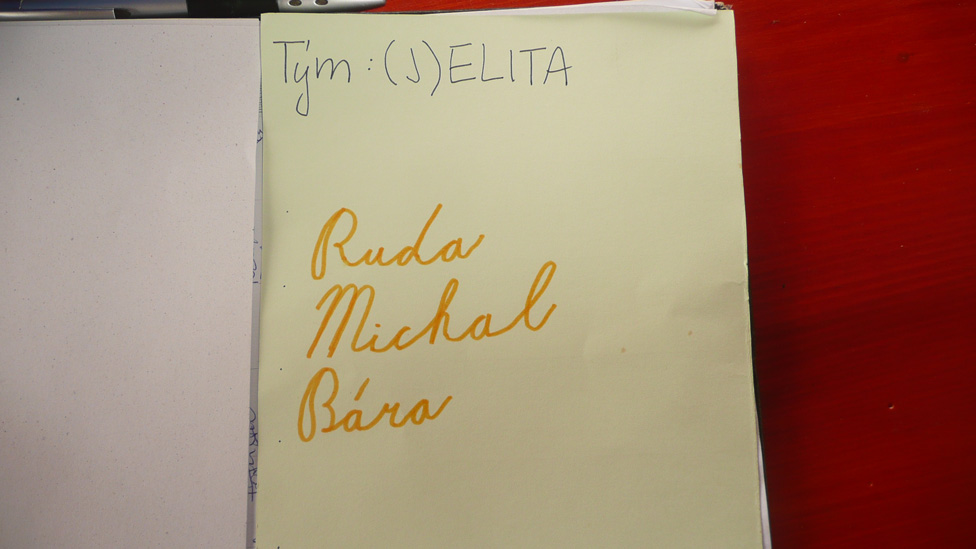 Tým: (J)ELITA
Ruda
Michal
Bára